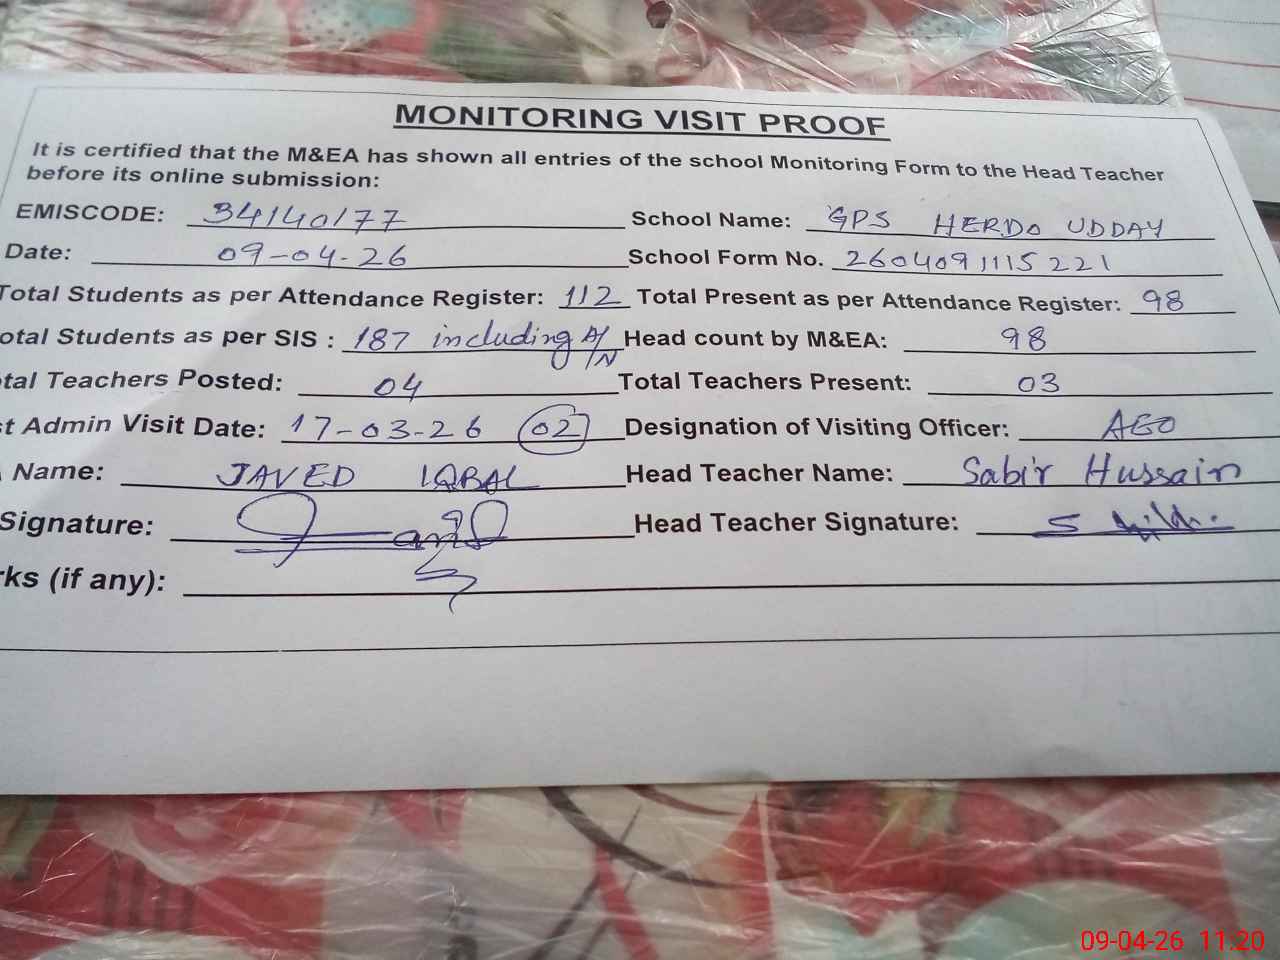 MONITORING VISIT PROOF
It is certified that the M&EA has shown all entries of the school Monitoring Form to the Head Teacher
before its online submission:
EMISCODE: 34140177 School Name: GPS HERDO UDDAY
Date: 09-04-26 School Form No. 2604091115221
Total Students as per Attendance Register: 112 Total Present as per Attendance Register: 98
otal Students as per SIS : 187 including A/N Head count by M&EA: 98
tal Teachers Posted: 04 Total Teachers Present: 03
t Admin Visit Date: 17-03-26 02 Designation of Visiting Officer: AEO
Name: JAVED IQBAL Head Teacher Name: Sabir Hussain
Signature: Head Teacher Signature:
rks (if any):
09-04-26 11:20